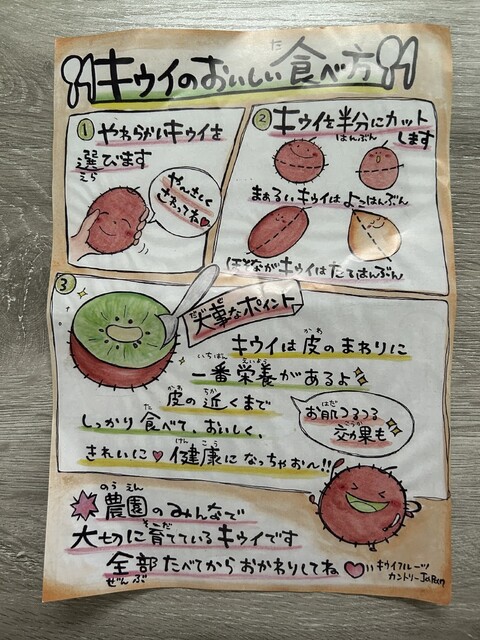 キウイのおいしい食べ方
た
① やわらかいキウイを
選びます
えら
や〜さしく
さわってね♥
② キウイを半分にカット
はんぶん
します
まぁるいキウイはよこはんぶん
ほそながキウイはたてはんぶん
③
だいじ
大事なポイント
かわ
キウイは皮のまわりに
いちばん えいよう
一番栄養があるよ
かわ ちか
皮の近くまで
た
しっかり食べて、おいしく、
けんこう
きれいに♥健康になっちゃお〜!!
はだ
お肌つるつる
こうか
効果も
のうえん
農園のみんなで
そだ
大切に育てているキウイです
全部たべてからおかわりしてね♡
ぜんぶ
キウイフルーツ
カントリーJapan